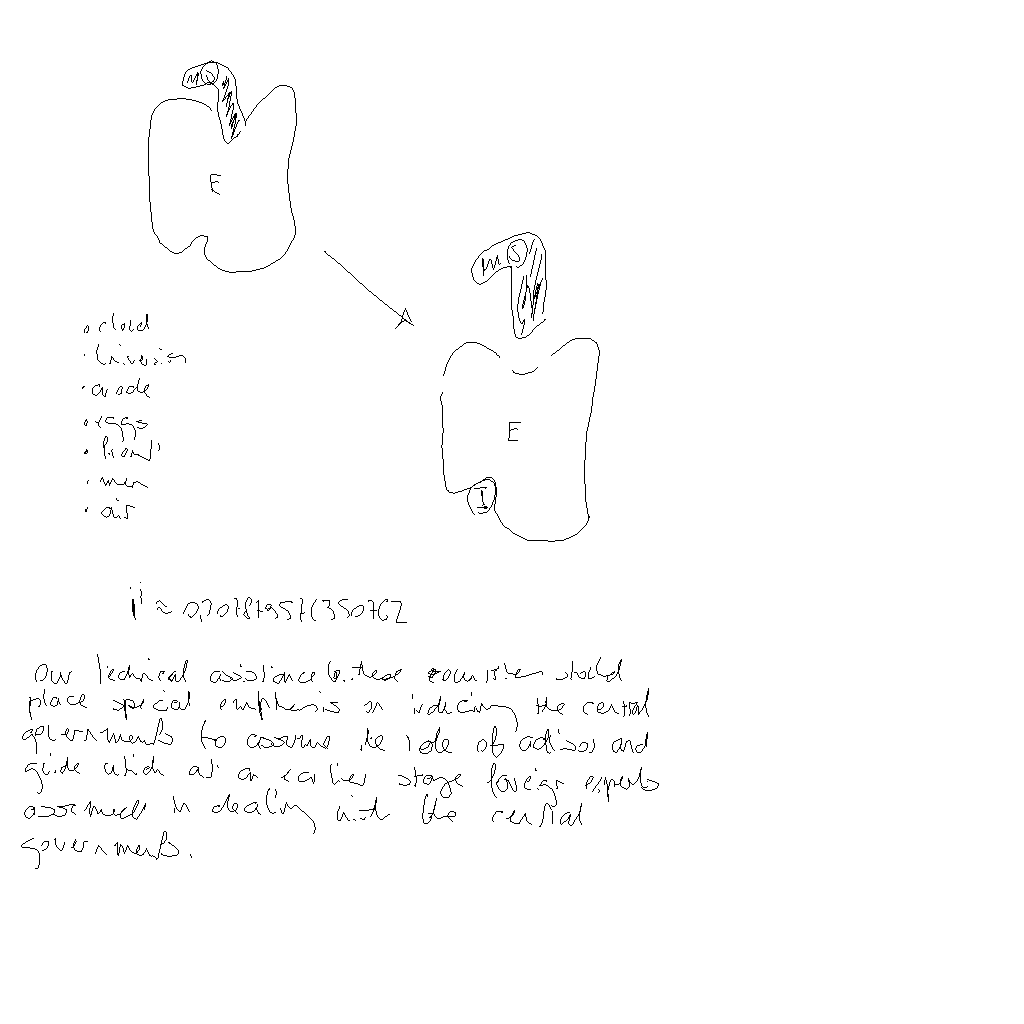 MS
E
MS
E
I
• cloud
• anode
• eggs
• men
• air
i^i ≈ 0,207879576350762
Our technical assistance to these countries should
place special emphasis on inducing the central
governments to assume the role of advisor and
guide which at an earlier stage foreign experts
assumed in dealing with the central
governments.